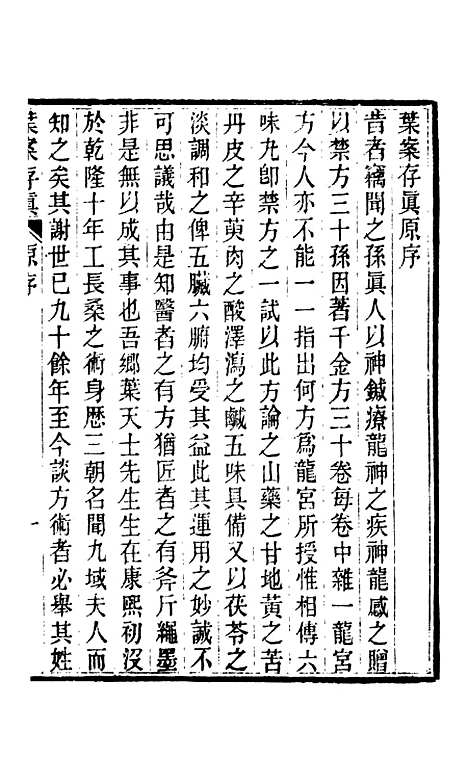 葉案存眞原序
昔者竊聞之孫眞人以神鍼療龍神之疾神龍感之贈
以禁方三十孫因著千金方三十卷每卷中雜一龍宮
方今人亦不能一一指出何方爲龍宮所授惟相傳六
味丸卽禁方之一試以此方論之山藥之甘地黃之苦
丹皮之辛萸肉之酸澤瀉之鹹五味具備又以茯苓之
淡調和之俾五臟六腑均受其益此其運用之妙誠不
可思議哉由是知醫者之有方猶匠者之有斧斤繩墨
非是無以成其事也吾鄉葉天士先生生在康熙初沒
於乾隆十年工長桑之術身歷三朝名聞九域夫人而
知之矣其謝世已九十餘年至今談方術者必舉其姓
葉案存眞 原序 一